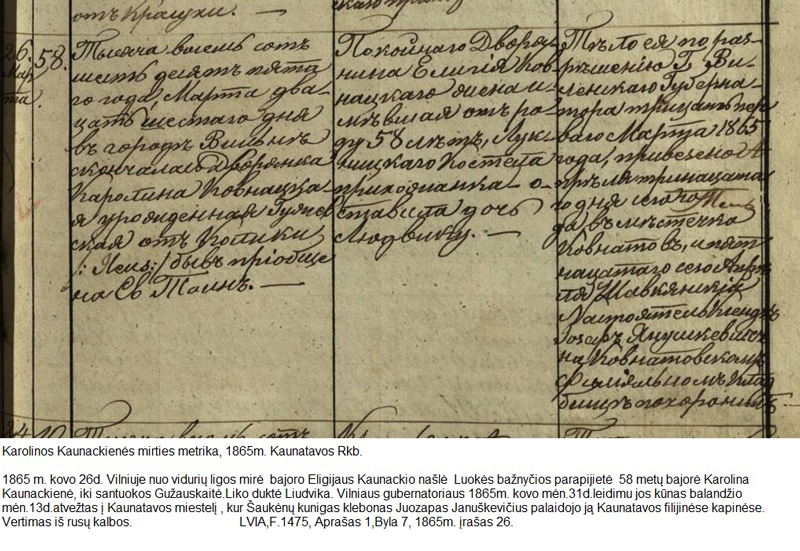 отъ
26.
Мар
та
58.
Тысяча восемь сотъ
шесть десятъ пята
го года, Марта два-
цать шестаго дня
въ городѣ Вильнѣ
скончалась Дворянка
Каролина Ковнацка-
я урожденная
ская отъ
бывъ пріобще
на Св. Таинъ. —
Покойнаго Дворя-
нина Елигія Ков
нацкаго жена и
мѣвшая отъ ро-
ду 58 лѣтъ, Лук-
ницкаго Костела
прихожанка о-
ставила дочь
Людвику. —
Тѣло ея по раз-
рѣшенію Г. Ви-
ленскаго Губерна-
тора тридцать пер
ваго Марта 1865
года, привезено А
прѣля тринадцата
го дня сего
да, въ мѣстечко
Ковнатовъ, и пят
надцатаго сего Апрѣ
ля Шавкянскій
Настоятель Ксендзъ
Іозефъ Янушкевичъ
на Ковнатовскомъ
Филіяльномъ Клад
бищѣ похоронилъ. —
Karolinos Kaunackienės mirties metrika, 1865m. Kaunatavos Rkb.
1865 m. kovo 26d. Vilniuje nuo vidurių ligos mirė bajoro Eligijaus Kaunackio našlė Luokės bažnyčios parapijietė 58 metų bajorė Karolina
Kaunackienė, iki santuokos Gužauskaitė.Liko duktė Liudvika. Vilniaus gubernatoriaus 1865m. kovo mėn.31d.leidimu jos kūnas balandžio
mėn.13d.atvežtas į Kaunatavos miestelį , kur Šaukėnų kunigas klebonas Juozapas Januškevičius palaidojo ją Kaunatavos filijinėse kapinėse.
Vertimas iš rusų kalbos. LVIA,F.1475, Aprašas 1,Byla 7, 1865m. įrašas 26.